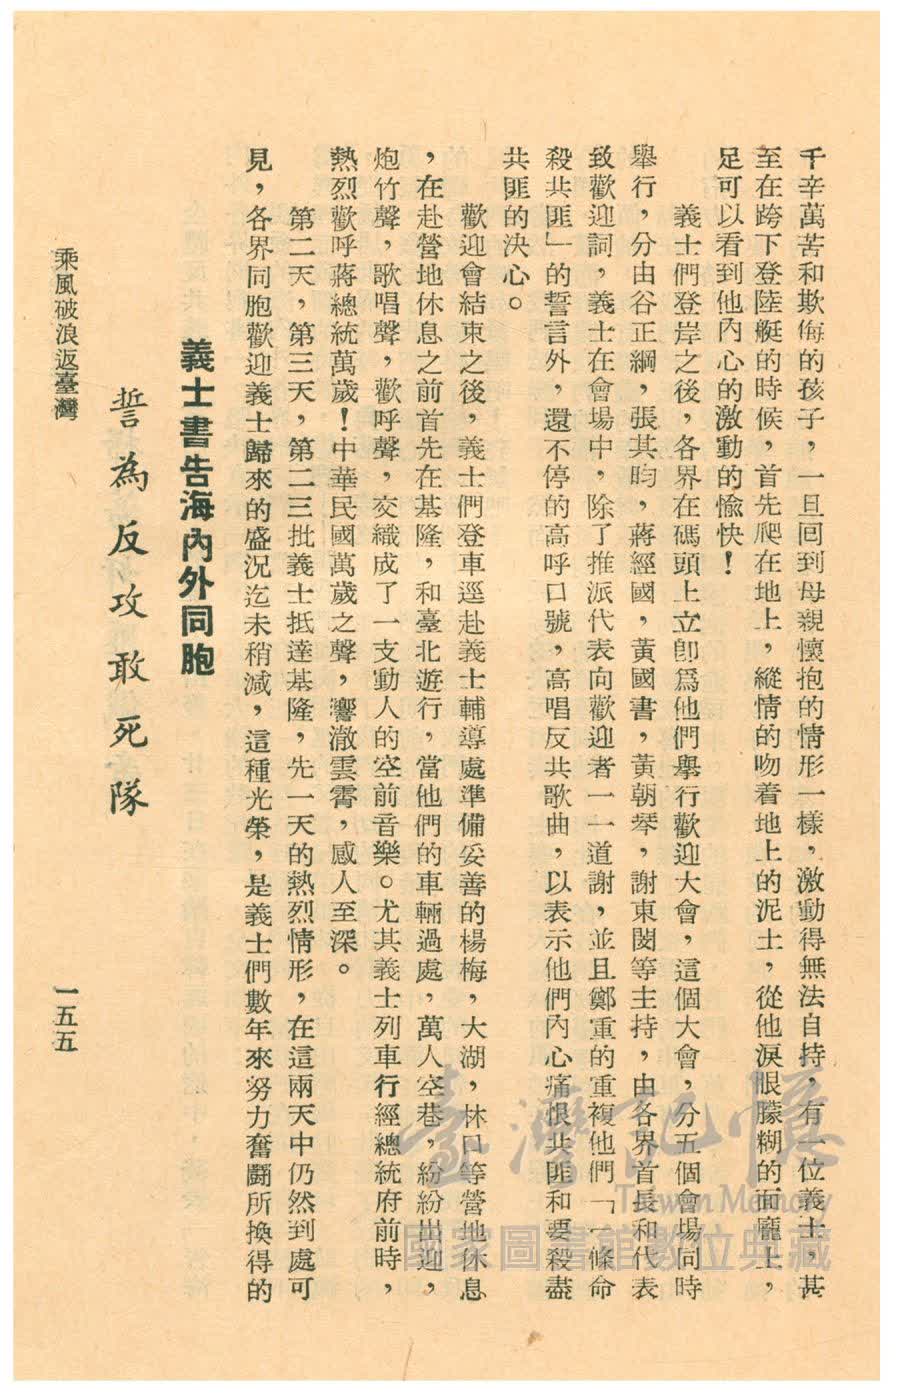 千辛萬苦和欺侮的孩子，一旦回到母親懷抱的情形一樣，激動得無法自持，有一位義士，甚
至在跨下登陸艇的時候，首先爬在地上，縱情的吻着地上的泥土，從他淚眼朦糊的面龐上，
足可以看到他內心的激動的愉快！
義士們登岸之後，各界在碼頭上立卽爲他們舉行歡迎大會，這個大會，分五個會場同時
舉行，分由谷正綱，張其昀，蔣經國，黃國書，黃朝琴，謝東閔等主持，由各界首長和代表
致歡迎詞，義士在會場中，除了推派代表向歡迎者一一道謝，並且鄭重的重複他們「一條命
殺共匪」的誓言外，還不停的高呼口號，高唱反共歌曲，以表示他們內心痛恨共匪和要殺盡
共匪的決心。
歡迎會結束之後，義士們登車逕赴義士輔導處準備妥善的楊梅，大湖，林口等營地休息
，在赴營地休息之前首先在基隆，和臺北遊行，當他們的車輛過處，萬人空巷，紛紛出迎，
炮竹聲，歌唱聲，歡呼聲，交織成了一支動人的空前音樂。尤其義士列車行經總統府前時，
熱烈歡呼蔣總統萬歲！中華民國萬歲之聲，響澈雲霄，感人至深。
第二天，第三天，第二三批義士抵達基隆，先一天的熱烈情形，在這兩天中仍然到處可
見，各界同胞歡迎義士歸來的盛況迄未稍減，這種光榮，是義士們數年來努力奮鬪所換得的
義士書告海內外同胞
誓為反攻敢死隊
乘風破浪返臺灣
一五五
臺灣記憶
Taiwan Memory
國家圖書館數位典藏